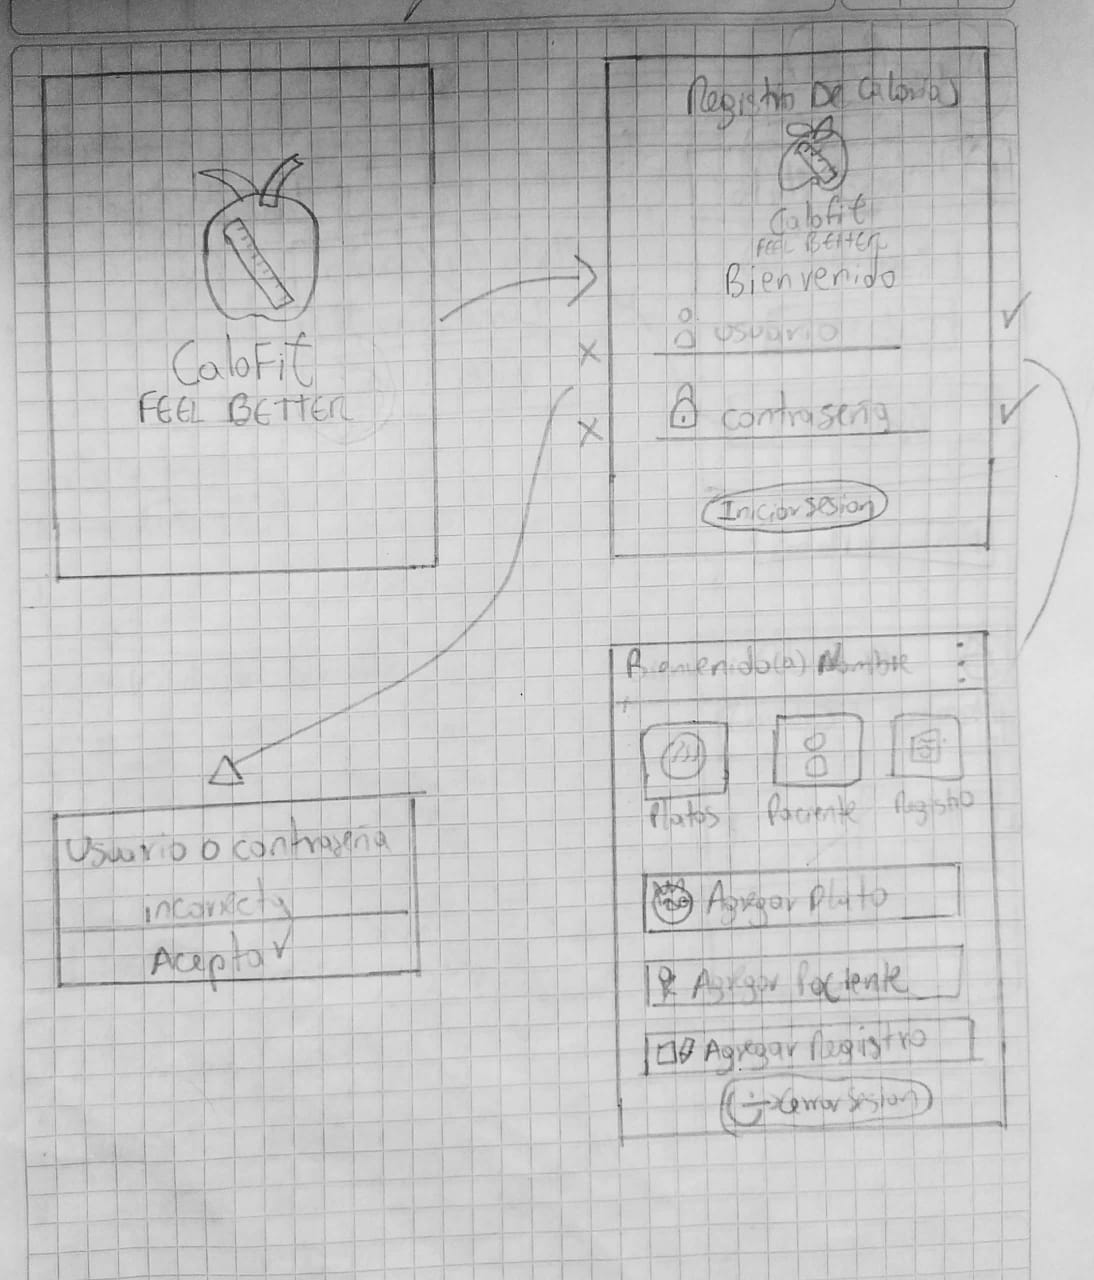 CaloFit
FEEL BETTER
Registro De Caloria(s)
Calofit
FEEL BETTER
Bienvenido
usuario
contraseña
Iniciar sesion
Usuario o contraseña
incorrecta
Aceptar
Bienvenido(a) Nombre
Platos Paciente Registro
Agregar Plato
Agregar Paciente
Agregar Registro
Cerrar sesion